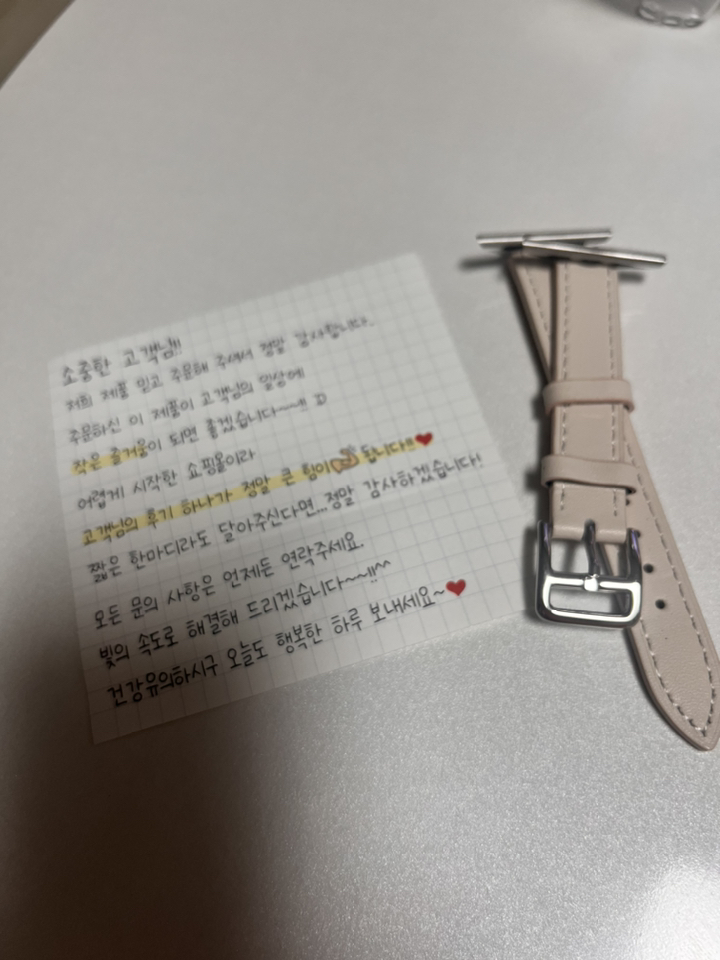 소중한 고객님!!
저희 제품 믿고 주문해 주셔서 정말 감사합니다.
주문하신 이 제품이 고객님의 일상에
작은 즐거움이 되면 좋겠습니다~~!! :D
어렵게 시작한 쇼핑몰이라
고객님의 후기 하나가 정말 큰 힘이💪 됩니다!!❤
짧은 한마디라도 달아주신다면...정말 감사하겠습니다!
모든 문의 사항은 언제든 연락주세요.
빛의 속도로 해결해 드리겠습니다~~!!^^
건강유의하시구 오늘도 행복한 하루 보내세요~❤